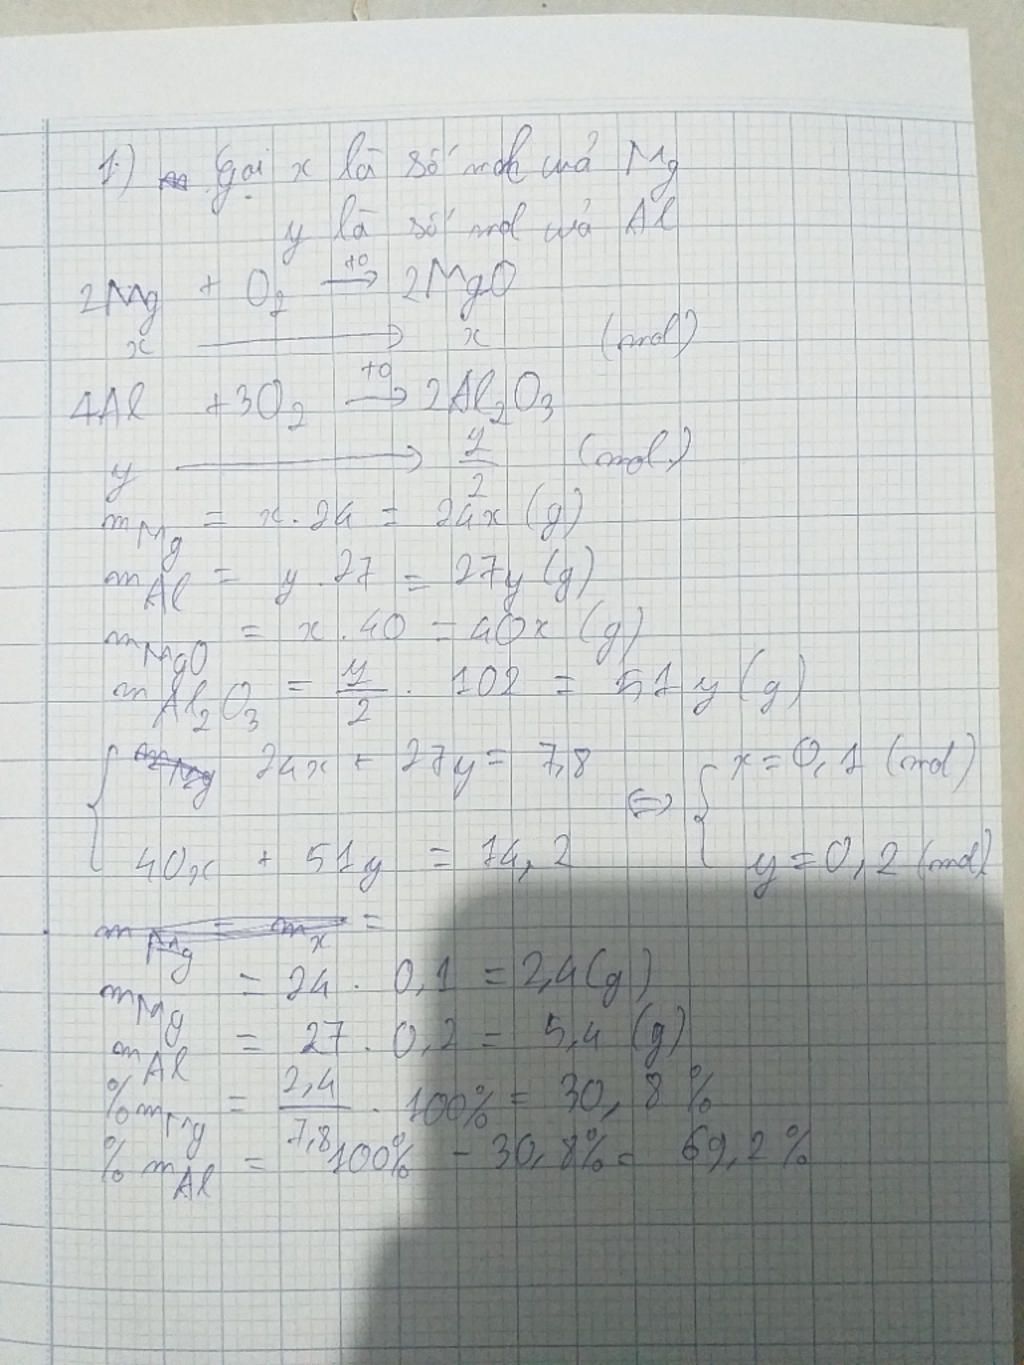 1) Gọi x là số mol của Mg
y là số mol của Al
2Mg + O₂ →(t⁰) 2MgO
x → x (mol)
4Al + 3O₂ →(t⁰) 2Al₂O₃
y → y/2 (mol)
m_Mg = x . 24 = 24x (g)
m_Al = y . 27 = 27y (g)
m_MgO = x . 40 = 40x (g)
m_Al₂O₃ = y/2 . 102 = 51y (g)
{ 24x + 27y = 7,8 ⇔ { x = 0,1 (mol)
40x + 51y = 14,2 y = 0,2 (mol)
m_Mg = m_x =
m_Mg = 24 . 0,1 = 2,4 (g)
m_Al = 27 . 0,2 = 5,4 (g)
%m_Mg = 2,4/7,8 . 100% = 30,8%
%m_Al = 100% - 30,8% = 69,2%